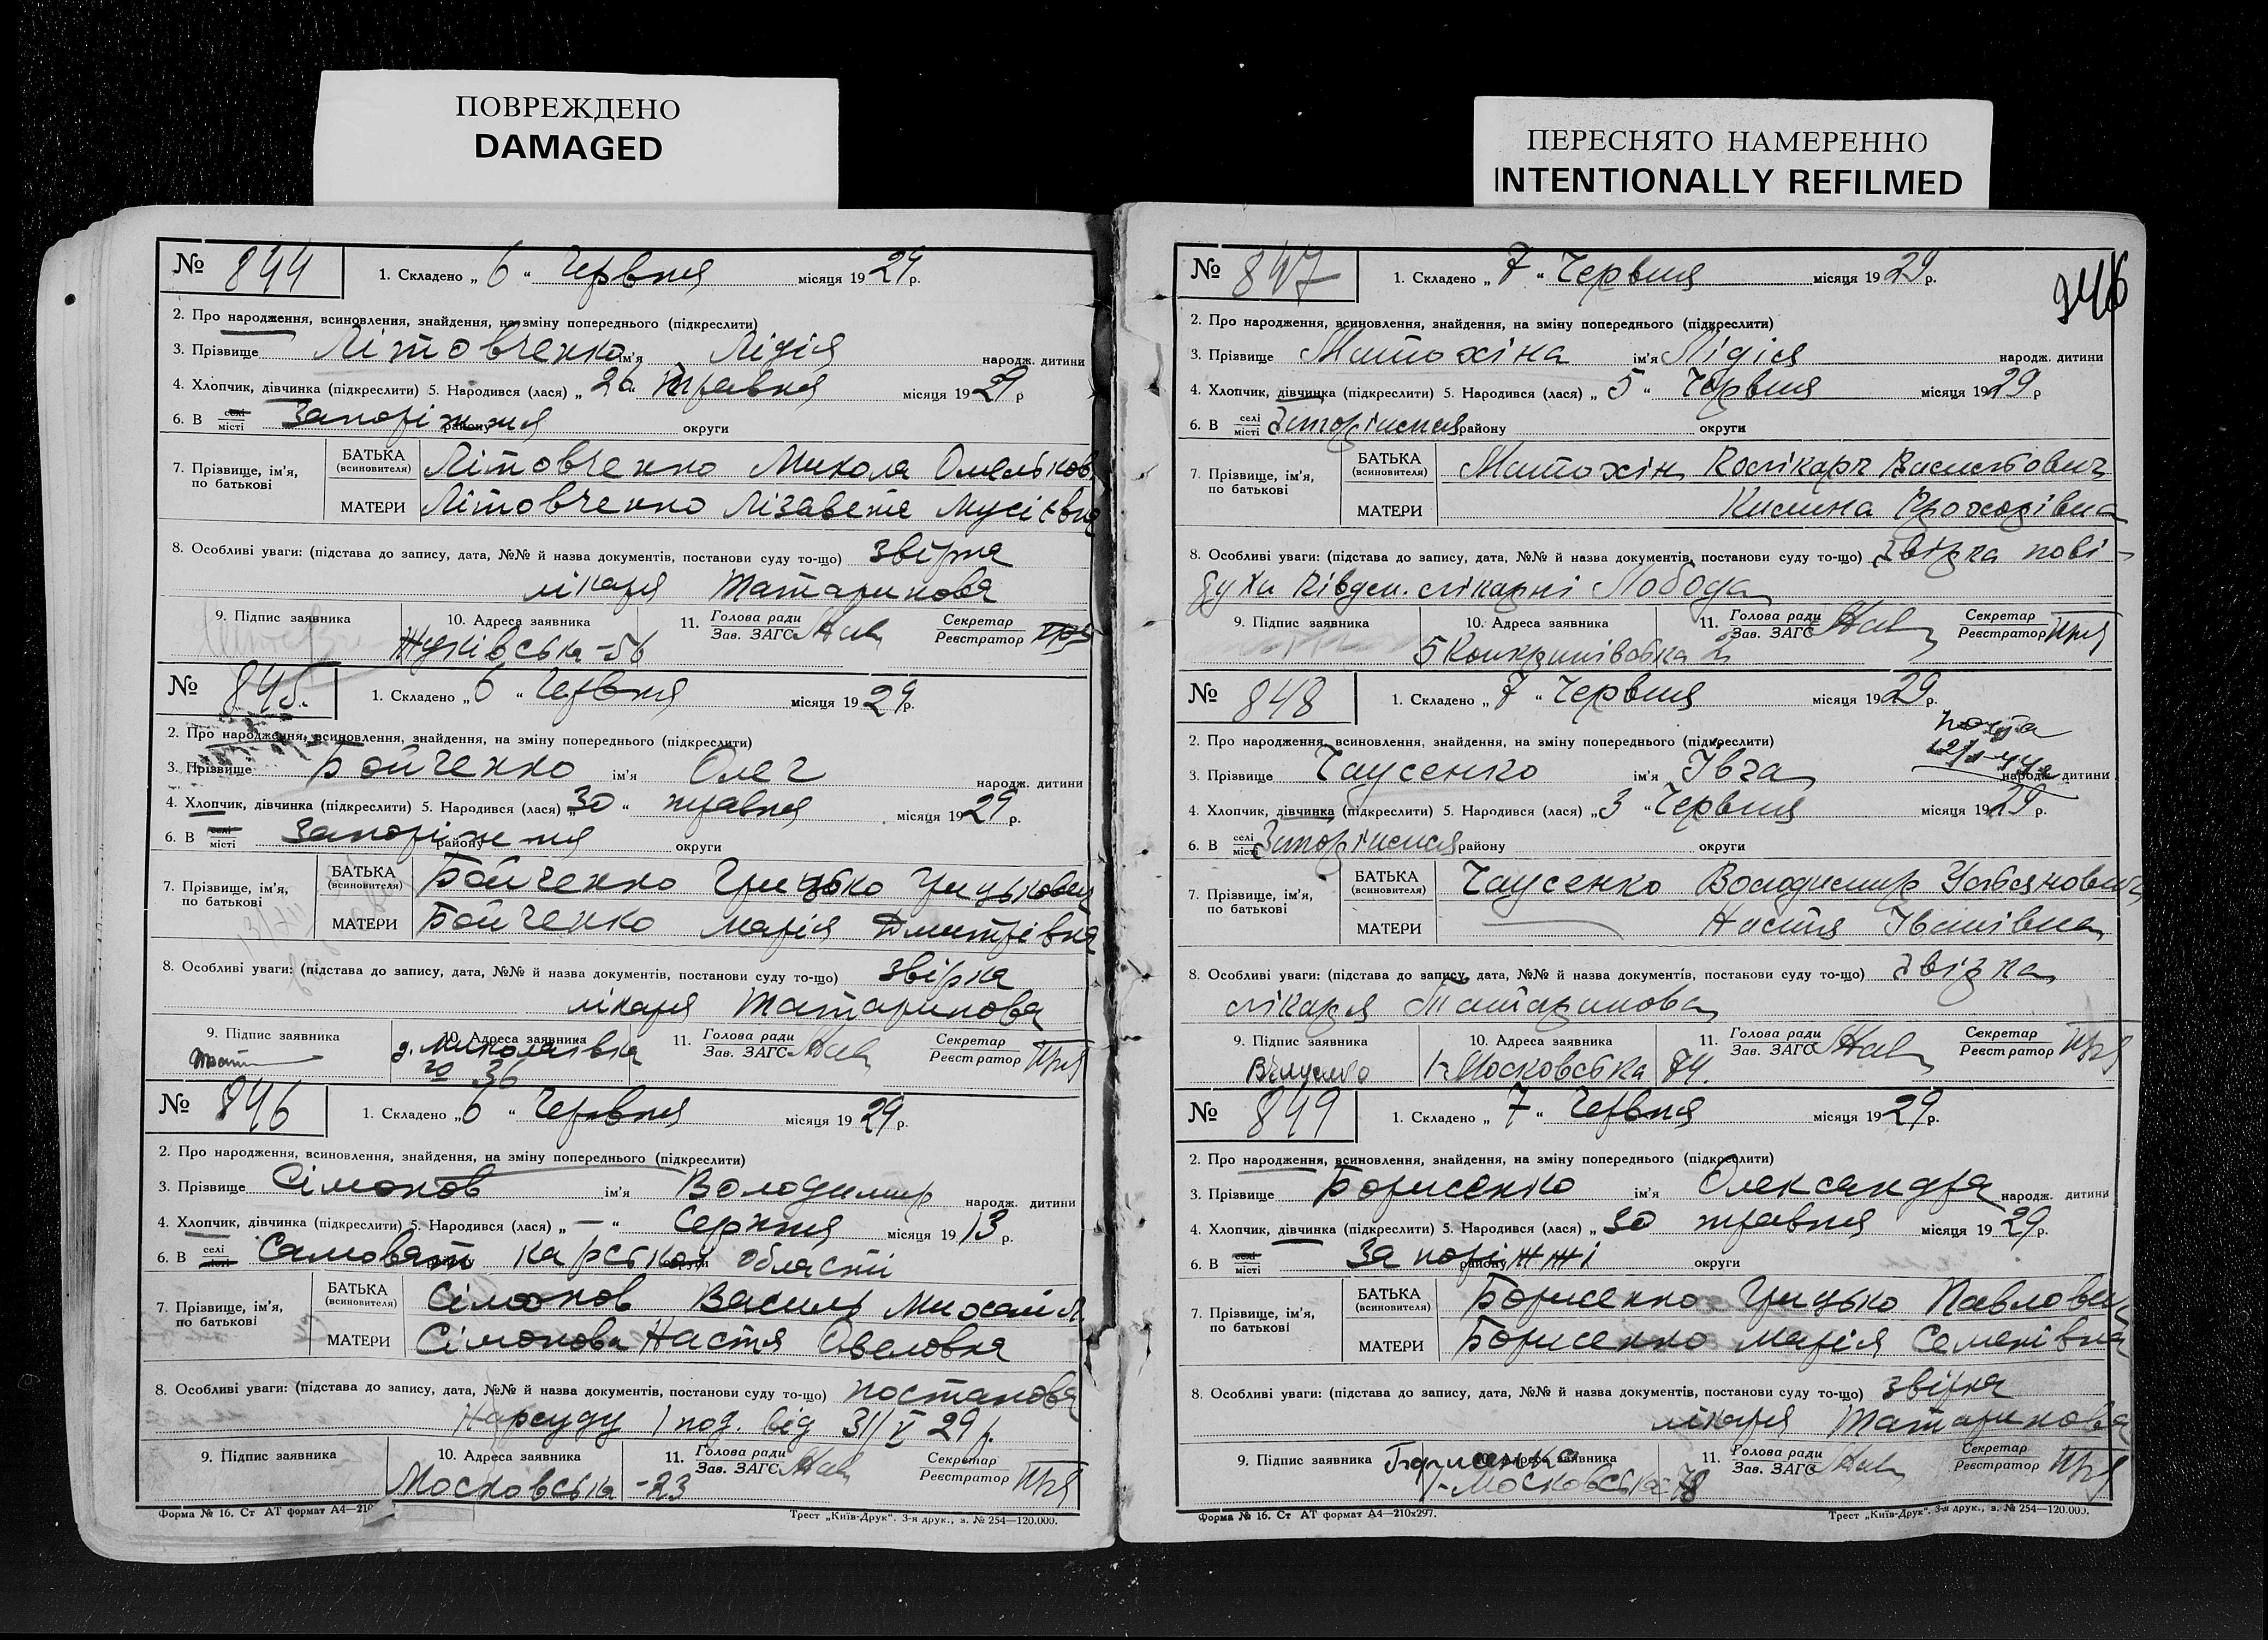 ПОВРЕЖДЕНО
DAMAGED
ПЕРЕСНЯТО НАМЕРЕННО
INTENTIONALLY REFILMED
№ 844 1. Складено „ 6 “ Червня місяця 1929 р.
2. Про народження, всиновлення, знайдення, на зміну попереднього (підкреслити)
3. Прізвище Літовченко ім'я Лідія народж. дитини
4. Хлопчик, дівчинка (підкреслити) 5. Народився (лася) „ 26 “ травня місяця 1929 р
6. В селі місті Запоріжжя району округи
7. Прізвище, ім'я, по батькові
БАТЬКА (всиновителя) Літовченко Микола Омельков
МАТЕРИ Літовченко Лізавета Мусієвна
8. Особливі уваги: (підстава до запису, дата, №№ й назва документів, постанови суду то-що) звірка
лікаря Татаринова
9. Підпис заявника 10. Адреса заявника 11. Голова ради Зав. ЗАГС Секретар Реєстратор
Жуківська - 56
№ 845. 1. Складено „ 6 “ Червня місяця 1929 р.
2. Про народження, всиновлення, знайдення, на зміну попереднього (підкреслити)
3. Прізвище Бойченко ім'я Олег народж. дитини
4. Хлопчик, дівчинка (підкреслити) 5. Народився (лася) „ 30 “ травня місяця 1929 р.
6. В селі місті Запоріжжя району округи
7. Прізвище, ім'я, по батькові
БАТЬКА (всиновителя) Бойченко Грицько Грицькович
МАТЕРИ Бойченко Марія Дмитрівна
8. Особливі уваги: (підстава до запису, дата, №№ й назва документів, постанови суду то-що) звірка
лікаря Татаринова
9. Підпис заявника 10. Адреса заявника 11. Голова ради Зав. ЗАГС Секретар Реєстратор
д. Миколаївка
36
№ 846 1. Складено „ 6 “ Червня місяця 1929 р.
2. Про народження, всиновлення, знайдення, на зміну попереднього (підкреслити)
3. Прізвище Сімонов ім'я Володимир народж. дитини
4. Хлопчик, дівчинка (підкреслити) 5. Народився (лася) „ — “ Серпня місяця 1913 р.
6. В селі місті Самоват Карської області району округи
7. Прізвище, ім'я, по батькові
БАТЬКА (всиновителя) Сімонов Василь Михайл.
МАТЕРИ Сімонова Настя Овеловна
8. Особливі уваги: (підстава до запису, дата, №№ й назва документів, постанови суду то-що) постанова
Нарсуду 1 под. від 31/V 29 р.
9. Підпис заявника 10. Адреса заявника 11. Голова ради Зав. ЗАГС Секретар Реєстратор
Московська - 23
Форма № 16. Ст АТ формат А4—210
Трест „Київ-Друк“. 3-я друк., з. № 254—120.000.
№ 847 1. Складено „ 7 “ Червня місяця 1929 р.
246
2. Про народження, всиновлення, знайдення, на зміну попереднього (підкреслити)
3. Прізвище Митохіна ім'я Лідія народж. дитини
4. Хлопчик, дівчинка (підкреслити) 5. Народився (лася) „ 5 “ Червня місяця 1929 р
6. В селі місті Запоріжжя району округи
7. Прізвище, ім'я, по батькові
БАТЬКА (всиновителя) Митохін Полікарп Васильович
МАТЕРИ Килина Прохорівна
8. Особливі уваги: (підстава до запису, дата, №№ й назва документів, постанови суду то-що) Звірка пові-
духи Півден. лікарні Лобода
9. Підпис заявника 10. Адреса заявника 11. Голова ради Зав. ЗАГС Секретар Реєстратор
№ 848 1. Складено „ 7 “ Червня місяця 1929 р.
2. Про народження, всиновлення, знайдення, на зміну попереднього (підкреслити)
3. Прізвище Чаусенко ім'я Івга народж. дитини
4. Хлопчик, дівчинка (підкреслити) 5. Народився (лася) „ 3 “ Червня місяця 1929 р.
6. В селі місті Запоріжжя району округи
7. Прізвище, ім'я, по батькові
БАТЬКА (всиновителя) Чаусенко Володимир
МАТЕРИ Настя Іванівна
8. Особливі уваги: (підстава до запису, дата, №№ й назва документів, постанови суду то-що) Звірка
лікаря Татаринова
9. Підпис заявника 10. Адреса заявника 11. Голова ради Зав. ЗАГС Секретар Реєстратор
Московська 74.
№ 849 1. Складено „ 7 “ Червня місяця 1929 р.
2. Про народження, всиновлення, знайдення, на зміну попереднього (підкреслити)
3. Прізвище Борисенко ім'я Олександра народж. дитини
4. Хлопчик, дівчинка (підкреслити) 5. Народився (лася) „ 30 травня місяця 1929 р.
6. В селі місті Запоріжжі району округи
7. Прізвище, ім'я, по батькові
БАТЬКА (всиновителя) Борисенко Грицько Павлович
МАТЕРИ Борисенко Марія Семенівна
8. Особливі уваги: (підстава до запису, дата, №№ й назва документів, постанови суду то-що) звірка
лікаря Татаринова
9. Підпис заявника 10. Адреса заявника 11. Голова ради Зав. ЗАГС Секретар Реєстратор
Московська - 78
Форма № 16. Ст АТ формат А4—210х297.
Трест „Київ-Друк“. 3-я друк., з. № 254—120.000.